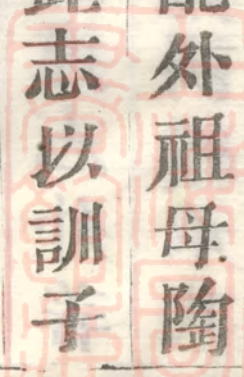 外祖母陶
志以訓子